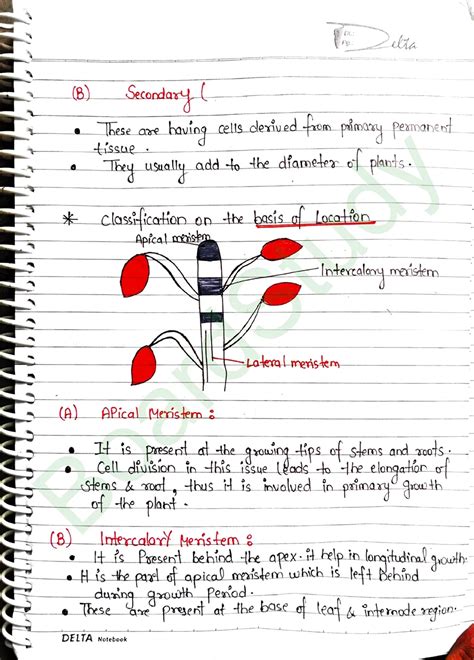 Delta
(B) Secondary (
• These are having cells derived from primary permanent
tissue.
• They usually add to the diameter of plants.
* Classification on the basis of Location
Apical meristem
Intercalary meristem
Lateral meristem
(A) Apical Meristem :
• It is present at the growing tips of stems and roots.
• Cell division in this issue leads to the elongation of
stems & root, thus it is involved in primary growth
of the plant.
(B) Intercalary Meristem :
• It is Present behind the apex. it help in longitudinal growth.
• It is the part of apical meristem which is left behind
during growth Period.
• These are present at the base of leaf & internode region.
DELTA Notebook
BoardStudy